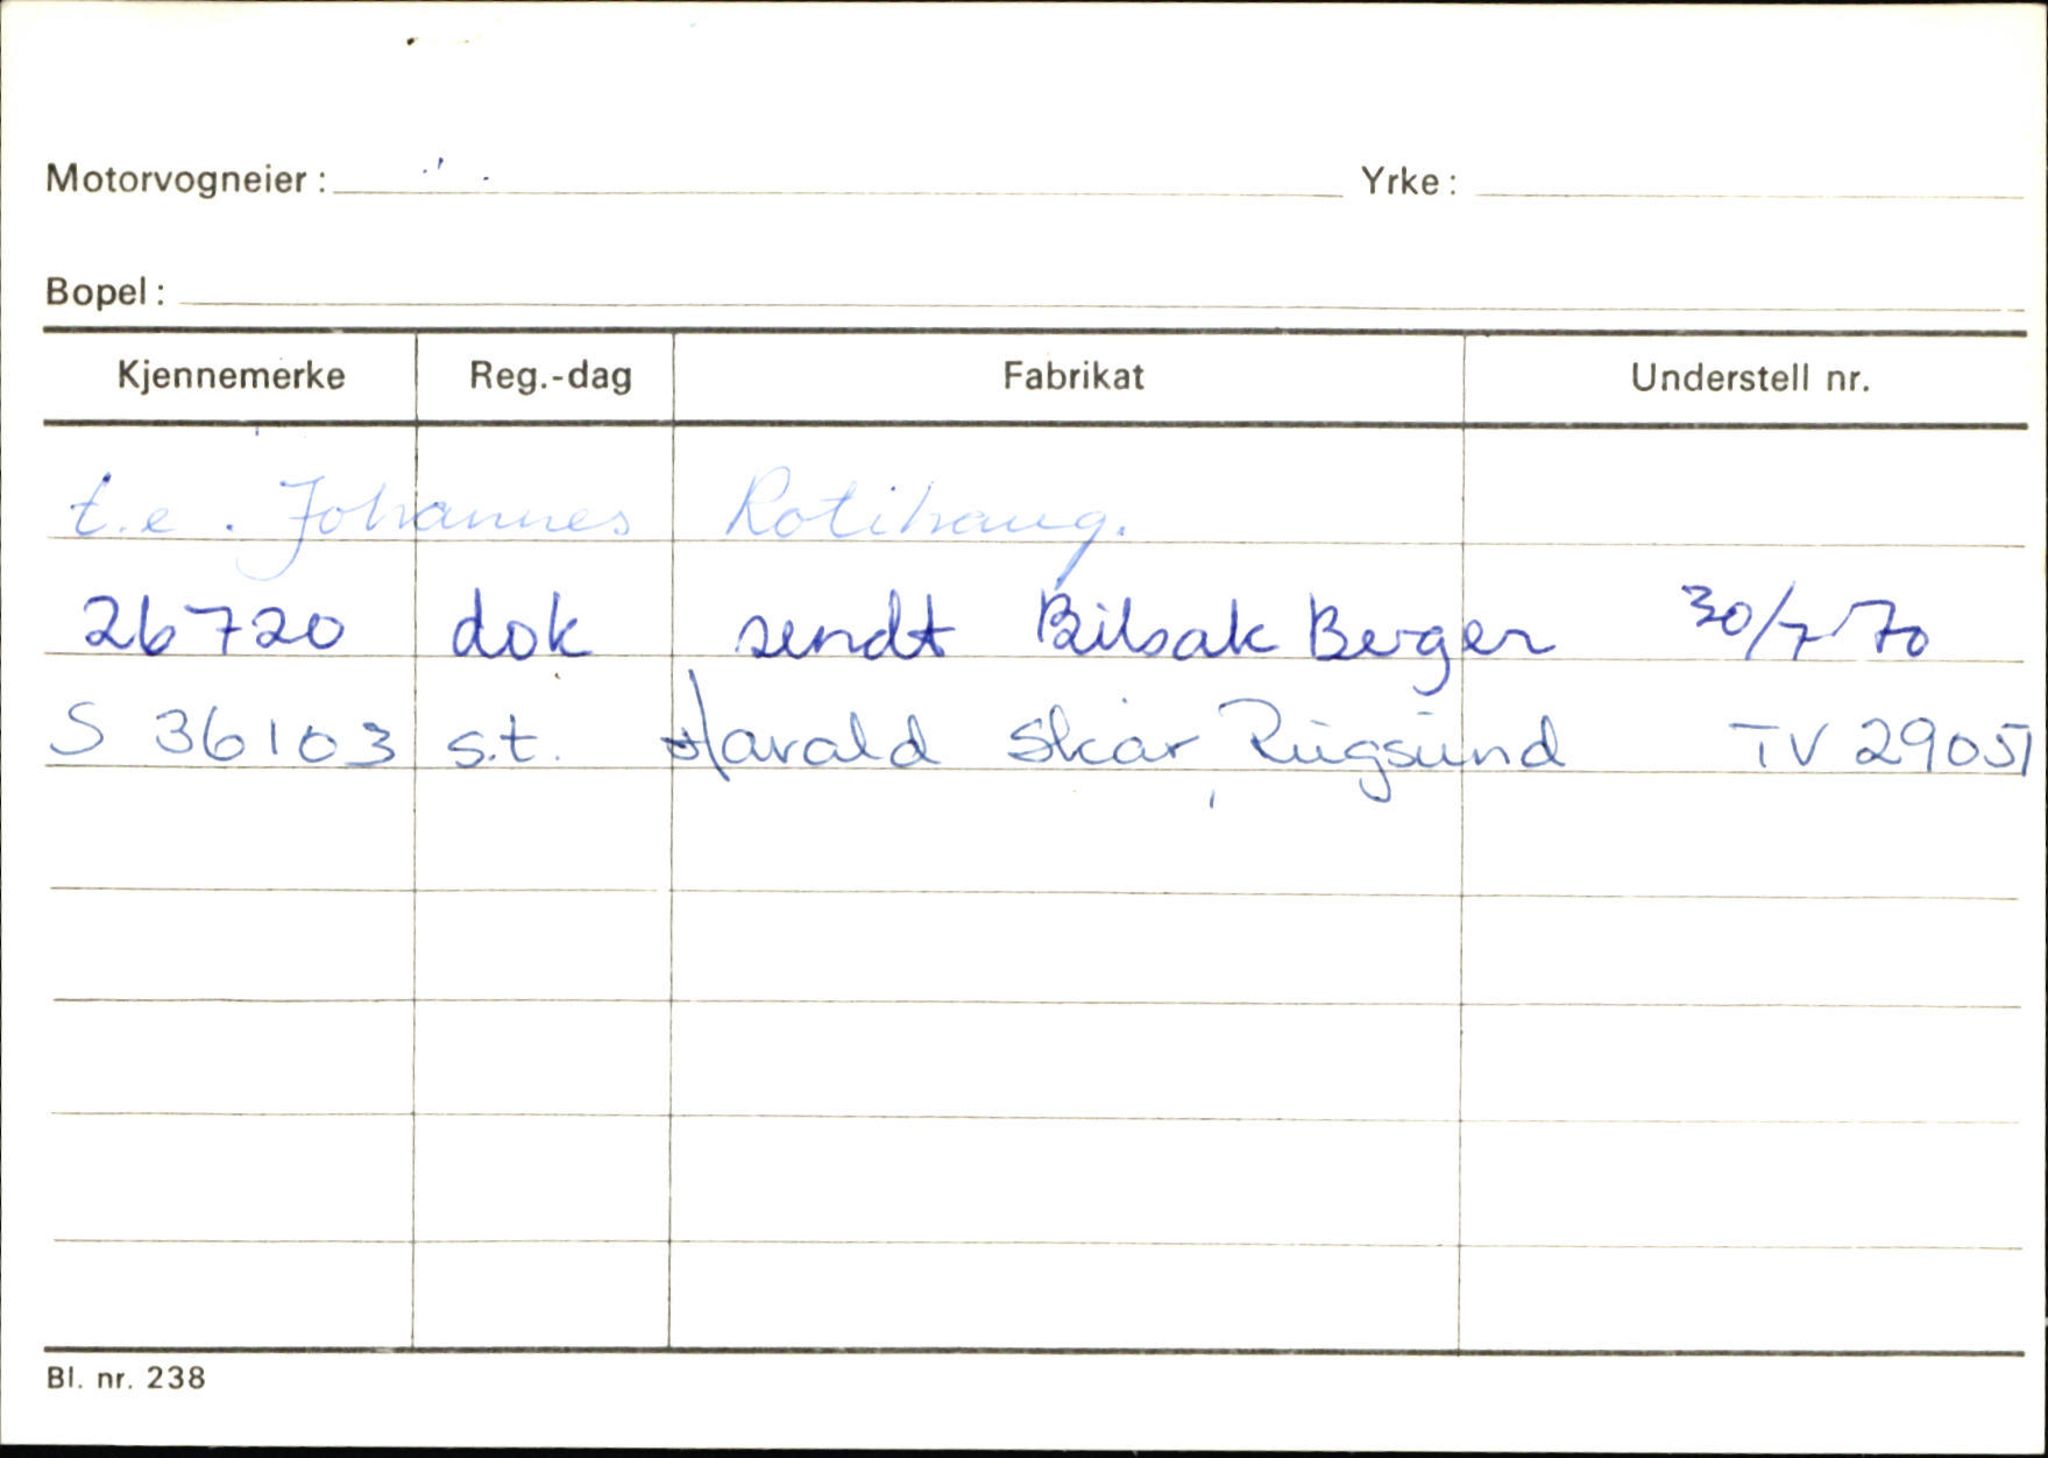 Motorvogneier: Yrke:
Bopel:
Kjennemerke Reg.-dag Fabrikat Understell nr.
t.e. Johannes Rotihaug.
26720 dok sendt Bilsak Berger 30/7 70
S 36103 s.t. Harald Skår, Rugsund TV 29051
Bl. nr. 238